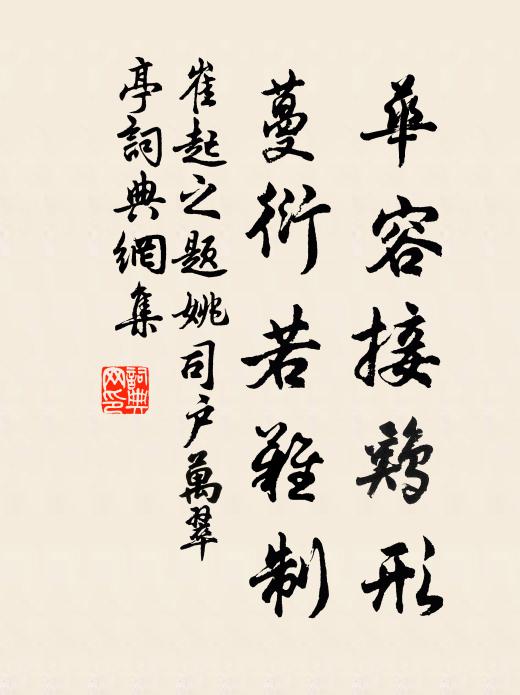 華容接鷄形
蔓衍若難制
崔起之題姚司户萬翠
亭詞典網集
詞典
网印